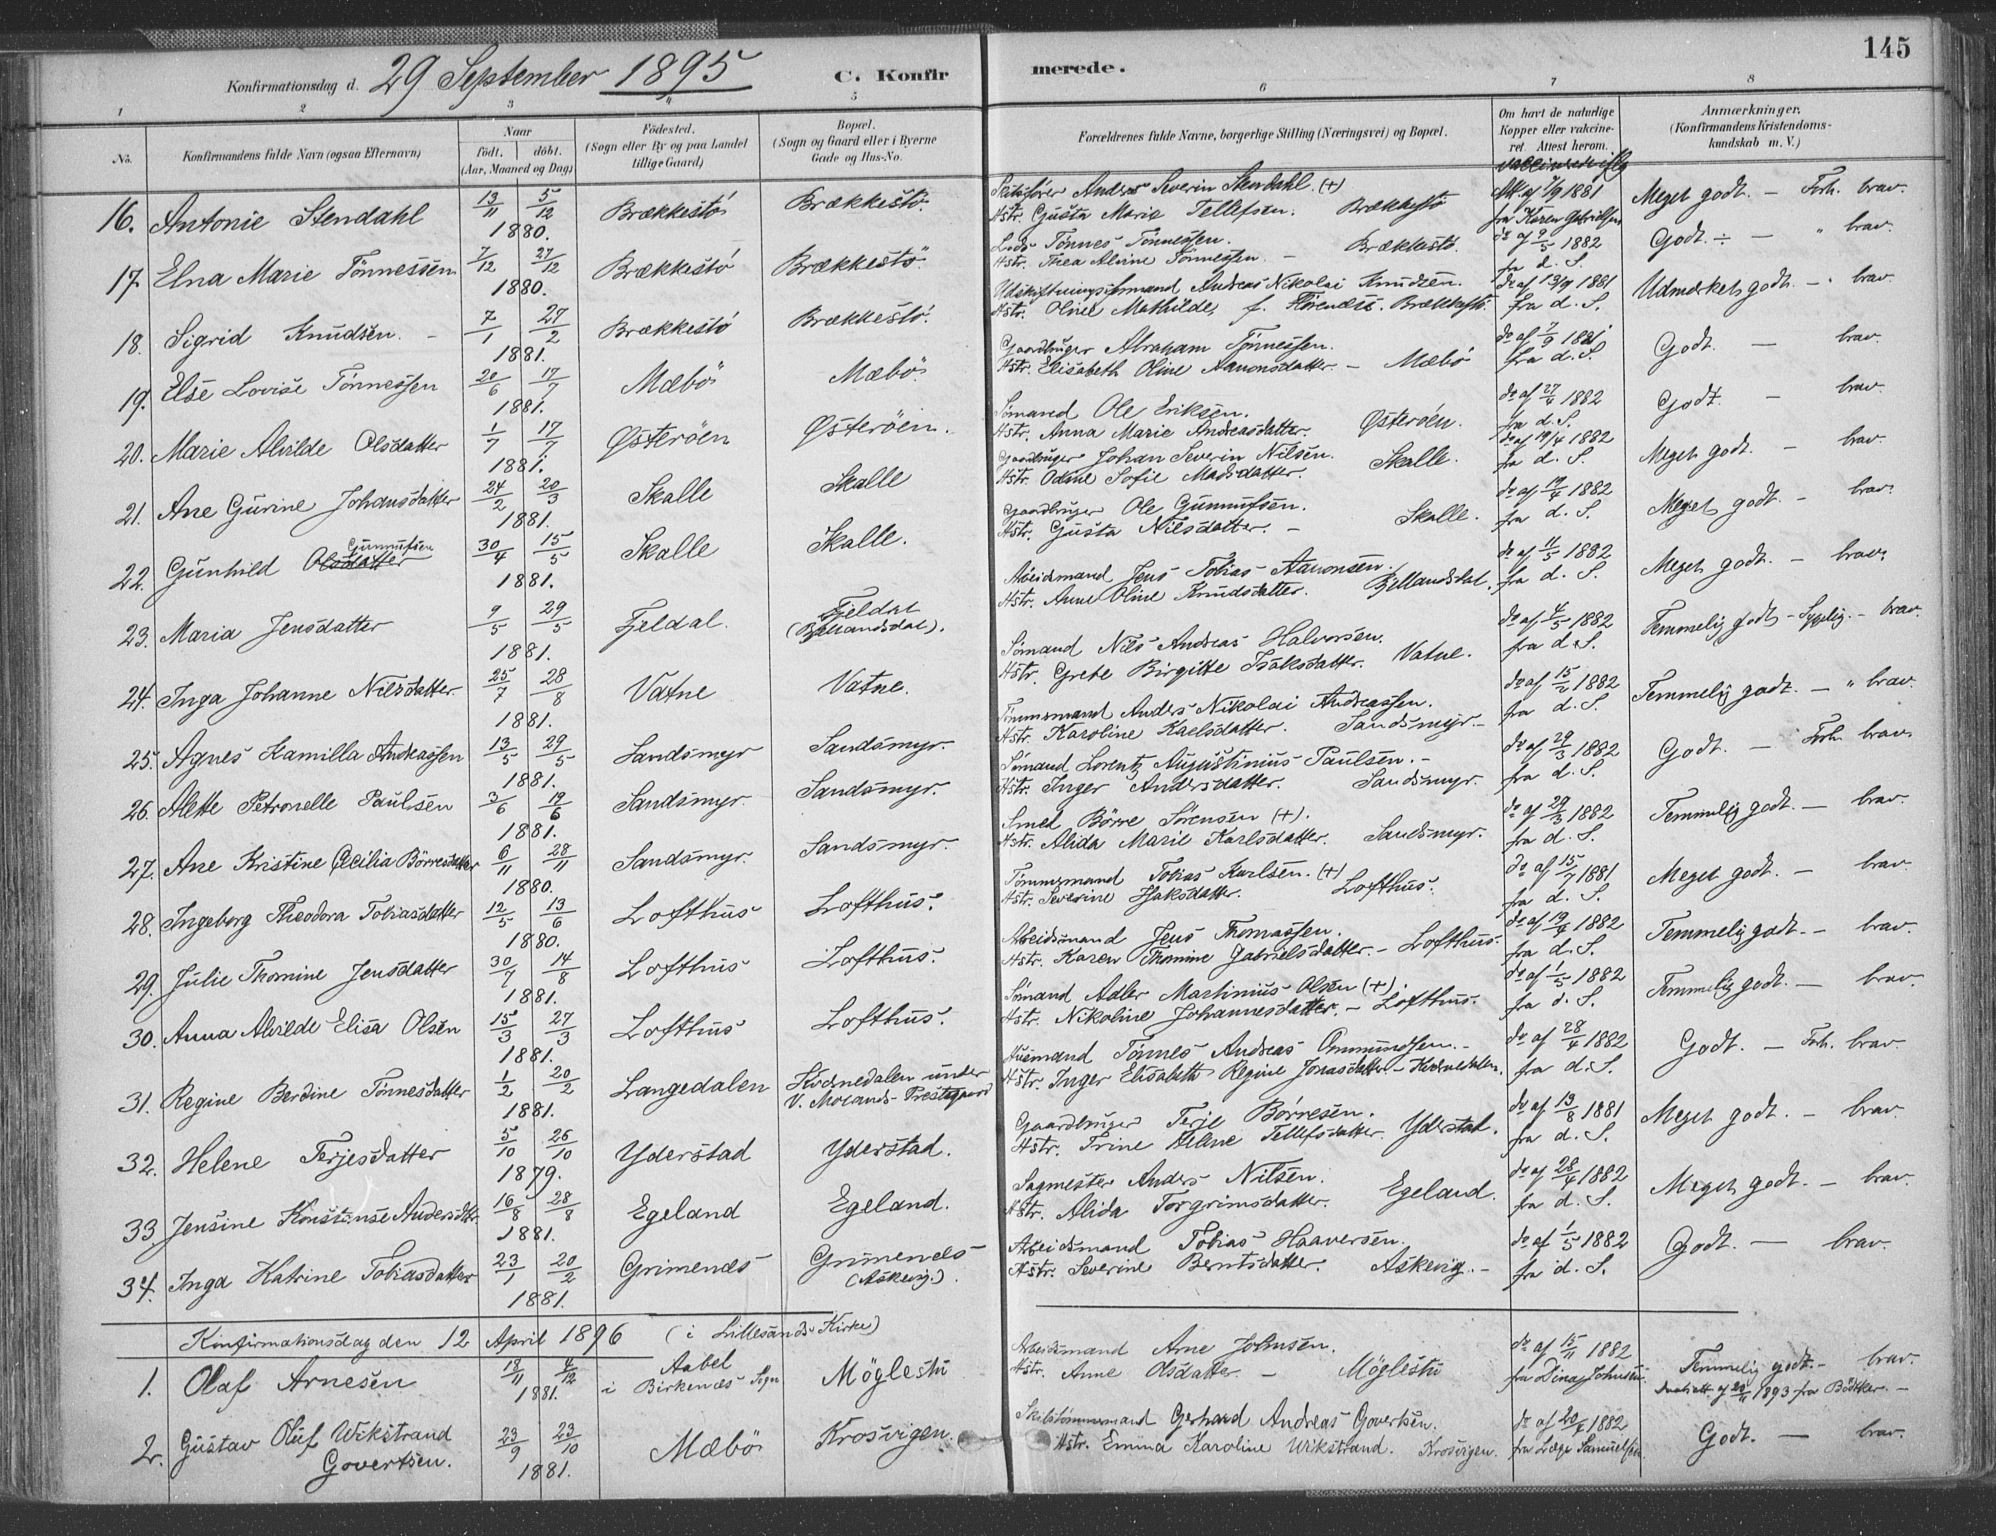 145
Konfirmationsdag d. 29 September 1895 C. Konfirmerede.
1 2 3 " 5 6 7 8
No. Konfirmandens fulde Navn (ogsaa Efternavn) Naar født. døbt. (Aar, Maaned og Dag) Fødested. (Sogn eller By og paa Landet tillige Gaard) Bopæl. (Sogn og Gaard eller i Byerne Gade og Hus-No. Forældrenes fulde Navne, borgerlige Stilling (Næringsvei) og Bopæl. Om havt de naturlige Kopper eller vakcineret. Attest herom. Anmærkninger, (Konfirmandens Kristendomskundskab m. V.)
16. Antonie Stendahl 13/11 5/12 1880. Brækkestö Brækkestö. Skibsfører Anders Severin Stendahl (+)
Hstr. Gusta Marie Tellefsen. Brækkestö Att. af 7/9 1881 fra Karen Gabrielsen Meget godt. – Forh. brav.
17. Elna Marie Tönnessen 7/12 27/12 1880. Brækkestö Brækkestö. Lods Tönnes Tönnessen.
Hstr. Thea Alvine Tönnessen. – Brækkestö. do af 9/5 1882 fra d. S. Godt ÷ – " brav.
18. Sigrid Knudsen. – 7/1 27/2 1881. Brækkestö Brækkestö. Udskiftningsformand Andreas Nikolai Knudsen.
Hstr. Oline Mathilde, f. Brækkestö. do af 13/9 1881 fra d. S. Udmerket godt. – " brav.
19. Else Lovise Tönnessen 20/6 17/7 1881. Mæbö Mæbö. Gaardbruger Abraham Tönnessen.
Hstr. Elisabeth Oline Aanonsdatter. – Mæbö do af 7/9 1881 fra d. S. Godt. – brav.
20. Marie Alvilde Olsdatter 1/7 17/7 1881. Østeröen Østeröen. Sömand Ole Eriksen.
Hstr. Anna Marie Andreasdatter. Østeröen. do af 27/4 1882 fra d. S. Godt. – brav.
21. Ane Gurine Johansdatter 24/2 20/3 1881. Skalle Skalle Gaardbruger Johan Severin Nilsen.
Hstr. Odine Sofie Madsdatter. Skalle. do af 19/4 1882 fra d. S. Meget godt. – brav.
22. Gunhild Olsdatter Gunnufsen 30/4 15/5 1881. Skalle Skalle. Gaardbruger Ole Gunnufsen.
Hstr. Gusta Nilsdatter. – Skalle. do af 19/4 1882 fra d. S. Meget godt. – brav.
23. Maria Jensdatter 9/5 29/5 1881. Fjeldal. Fjeldal (Bjellandsdal). Arbeidsmand Jens Tobias Aanonsen.
Hstr. Anne Oline Knudsdatter. Bjellandsdal. do af 11/5 1882 fra d. S. Meget godt. – brav.
24. Inga Johanne Nilsdatter 25/7 28/8 1881. Vatne Vatne. Sömand Nils Andreas Halvorsen.
Hstr. Grete Birgitte Isaksdatter. Vatne. do af 4/5 1882 fra d. S. Temmelig godt – Sygelig. – brav.
25. Agnes Kamilla Andreassen 13/5 29/5 1881. Sandsmyr Sandsmyr. Tömmermand Anders Nikolai Andreassen.
Hstr. Karoline Kaelsdatter. Sandsmyr. – do af 15/2 1882 fra d. S. Temmelig godt. – " brav.
26. Alette Petronelle Paulsen 3/6 19/6 1881. Sandsmyr. Sandsmyr. Sömand Lorentz Augustinius Paulsen. –
Hstr. Inger Andersdatter. Sandsmyr. do af 29/3 1882 fra d. S. Godt. – Forh. brav.
27. Ane Kristine Cecilia Börresdatter 6/11 28/11 1880. Sandsmyr. Sandsmyr. Smed Börre Sörensen (+).
Hstr. Alida Marie Karlsdatter. Sandsmyr. do af 29/3 1882 fra d. S. Temmelig godt. – brav.
28. Ingeborg Theodora Tobiasdatter 12/5 13/6 1880. Lofthus Lofthus. Tömmermand Tobias Karlsen. (+)
Hstr. Severine Isaksdatter. Lofthus. do af 15/7 1881 fra d. S. Meget godt. – brav.
29. Julie Thomine Jensdatter 30/7 14/8 1881. Lofthus Lofthus. Arbeidsmand Jens Thomassen.
Hstr. Karen Thomine Gabrielsdatter. – Lofthus. do af 19/4 1882 fra d. S. Temmelig godt – brav.
30. Anna Alvilde Elisa Olsen 15/3 27/3 1881. Lofthus Lofthus. Sömand Adler Martinius Olsen (+).
Hstr. Nikoline Johannesdatter. – Lofthus. do af 1/5 1882 fra d. S. Temmelig godt. – brav.
31. Regine Berdine Tönnesdatter 1/2 20/2 1881. Langedalen Kvernedalen under V. Molands Prestegaard Husmand Tönnes Andreas Ommundsen. –
Hstr. Inger Elisabeth Regine Jonasdatter – Kvernedalen. do af 28/4 1882 fra d. S. Godt. – Forh. brav.
32. Helene Terjesdatter 5/10 26/10 1879. Yderstad Yderstad. Gaardbruger Terje Börresen.
Hstr. Trine Helene Tellefsdatter. Yderstad. do af 13/8 1881 fra d. S. Meget godt. – brav.
33. Jensine Konstanse Andersdtr. 16/8 28/8 1881. Egeland Egeland. Sagmester Anders Nilsen.
Hstr. Alida Torgrimsdatter. Egeland. do af 28/4 1882 fra d. S. Meget godt. – brav.
34. Inga Katrine Tobiasdatter 23/1 20/2 1881. Grimenes Grimenes (Askevig.). Arbeidsmand Tobias Haaversen.
Hstr. Severine Berntsdatter. Askevig. – do af 1/5 1882 fra d. S. Godt. – brav.
Konfirmationsdag den 12 April 1896 (i Lillesands Kirke)
1. Olaf Arnesen 18/11 4/12 1881. Aabel i Birkenes Sogn Möglestu Arbeidsmand Arne Johnsen.
Hstr. Anne Olsdatter. – Möglestu do af 15/11 1882 fra Dina Johnsen Temmelig godt. – brav.
1893 fra Bödtker. –
2. Gustav Oluf Wikstrand Govertsen. 23/9 23/10 1881. Mæbö Krosvigen. Skibstömmermand Gerhard Andreas Govertsen.
Hstr. Emma Karoline Wikstrand. Krosvigen. do af 20/9 1882 fra Læge Samuelsen Godt. – brav.